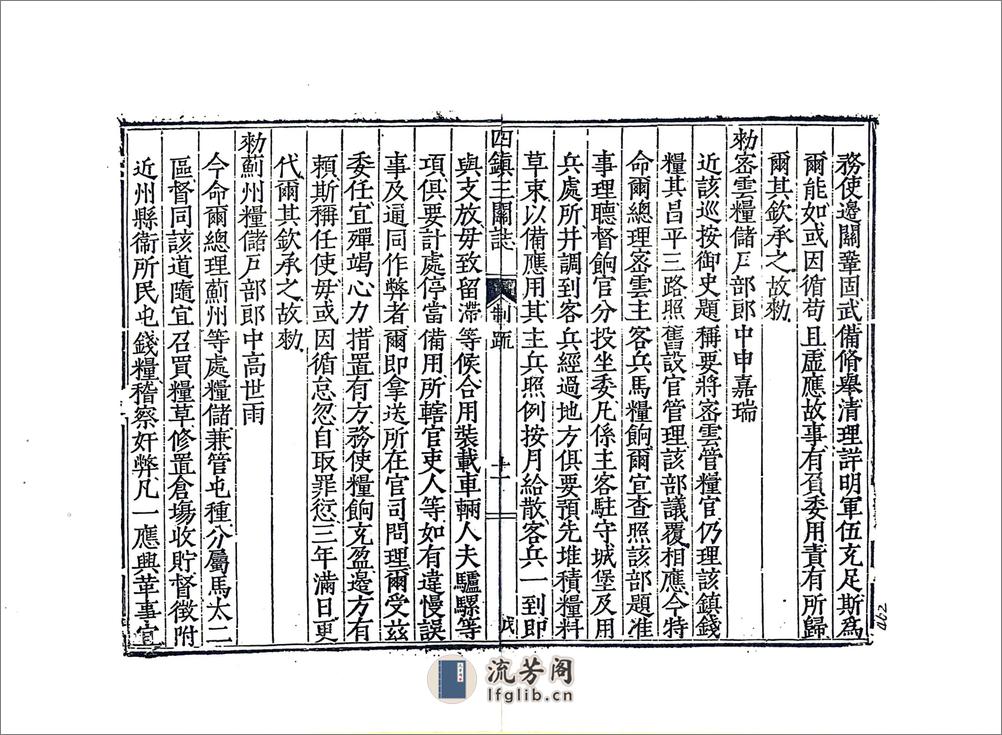 務使邊關鞏固武備脩舉清理詳明軍伍充足斯為
爾能如或因循苟且虛應故事有負委用責有所歸
爾其欽承之故勑
勑密雲糧儲戶部郎中申嘉瑞
近該巡按御史題稱要將密雲管糧官仍理該鎮錢
糧其昌平三路照舊設官管理該部議覆相應今特
命爾總理密雲主客兵馬糧餉爾宜查照該部題准
事理聽督餉官分投坐委凡係主客駐守城堡及用
兵處所并調到客兵經過地方俱要預先堆積糧料
草束以備應用其主兵照例按月給散客兵一到即
四鎮三關誌
制疏
十一
戌
與支放毋致留滯等候合用裝載車輛人夫驢騾等
項俱要計處停當備用所轄官吏人等如有違慢誤
事及通同作弊者爾即拿送所在官司問理爾受茲
委任宜殫竭心力措置有方務使糧餉充盈邊方有
賴斯稱任使毋或因循怠忽自取罪愆三年滿日更
代爾其欽承之故勑
勑薊州糧儲戶部郎中高世雨
今命爾總理薊州等處糧儲兼管屯種分屬馬太二
區督同該道隨宜召買糧草修置倉場收貯督徵附
近州縣衛所民屯錢糧稽察奸弊凡一應興革事宜
流芳阁
lfglib.cn